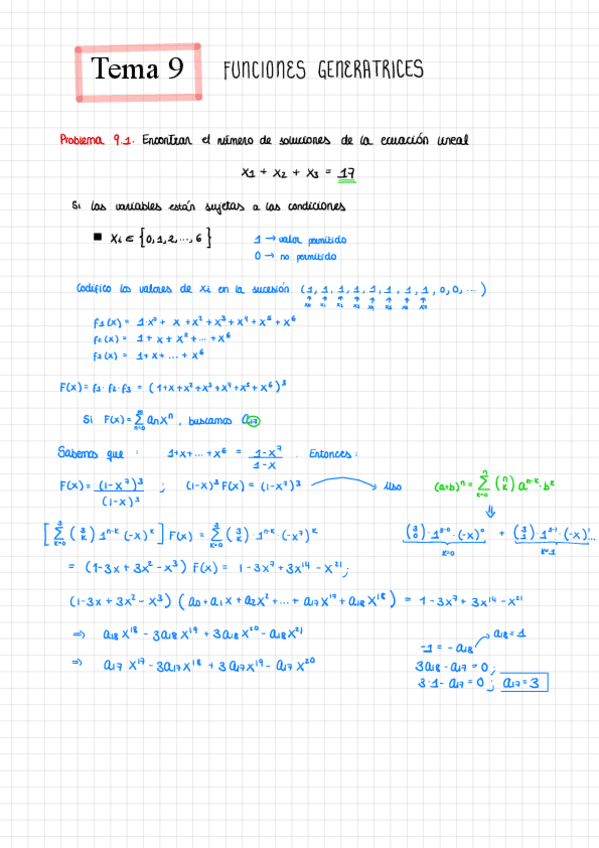 Tema 9 FUNCIONES GENERATRICES
Problema 9.1. Encontrar el número de soluciones de la ecuación lineal
x1 + x2 + x3 = 17
Si las variables están sujetas a las condiciones
■ xi ∈ {0,1,2,...,6} 1 → valor permitido
0 → no permitido
Codifico los valores de xi en la sucesión (1, 1, 1, 1, 1, 1, 1, 1, 1, 0, 0, ...)
f1(x) = 1·x⁰ + x + x² + x³ + x⁴ + x⁵ + x⁶
f2(x) = 1 + x + x² + ... + x⁶
f3(x) = 1 + x + ... + x⁶
F(x) = f1 · f2 · f3 = (1+x+x²+x³+x⁴+x⁵+x⁶)³
Si F(x) = ∑_{n=0}^{∞} anxⁿ, buscamos a17
Sabemos que : 1+x+...+x⁶ = (1-x⁷)/(1-x) . Entonces:
F(x) = (1-x⁷)³/(1-x)³ ; (1-x)³ F(x) = (1-x⁷)³ → Uso (a+b)ⁿ = ∑_{k=0}^{n} (n k) aⁿ⁻ᵏ · bᵏ
⇓
[∑_{k=0}^{3} (3 k) 1ⁿ⁻ᵏ (-x)ᵏ] F(x) = ∑_{k=0}^{3} (3 k) 1ⁿ⁻ᵏ · (-x⁷)ᵏ (3 0) · 1³⁻⁰ · (-x)⁰ + (3 1) 1³⁻¹ · (-x)¹...
k=0 k=1
= (1-3x + 3x² - x³) F(x) = 1 - 3x⁷ + 3x¹⁴ - x²¹ ;
(1-3x + 3x² - x³) (a0 + a1x + a2x² + ... + a17x¹⁷ + a18x¹⁸) = 1 - 3x⁷ + 3x¹⁴ - x²¹
⇒ a18 x¹⁸ - 3a18 x¹⁹ + 3a18x²⁰ - a18x²¹
-1 = -a18 → a18 = 1
⇒ a17 x¹⁷ - 3a17x¹⁸ + 3a17x¹⁹ - a17x²⁰
3a18 - a17 = 0 ;
3·1 - a17 = 0 ; a17 = 3